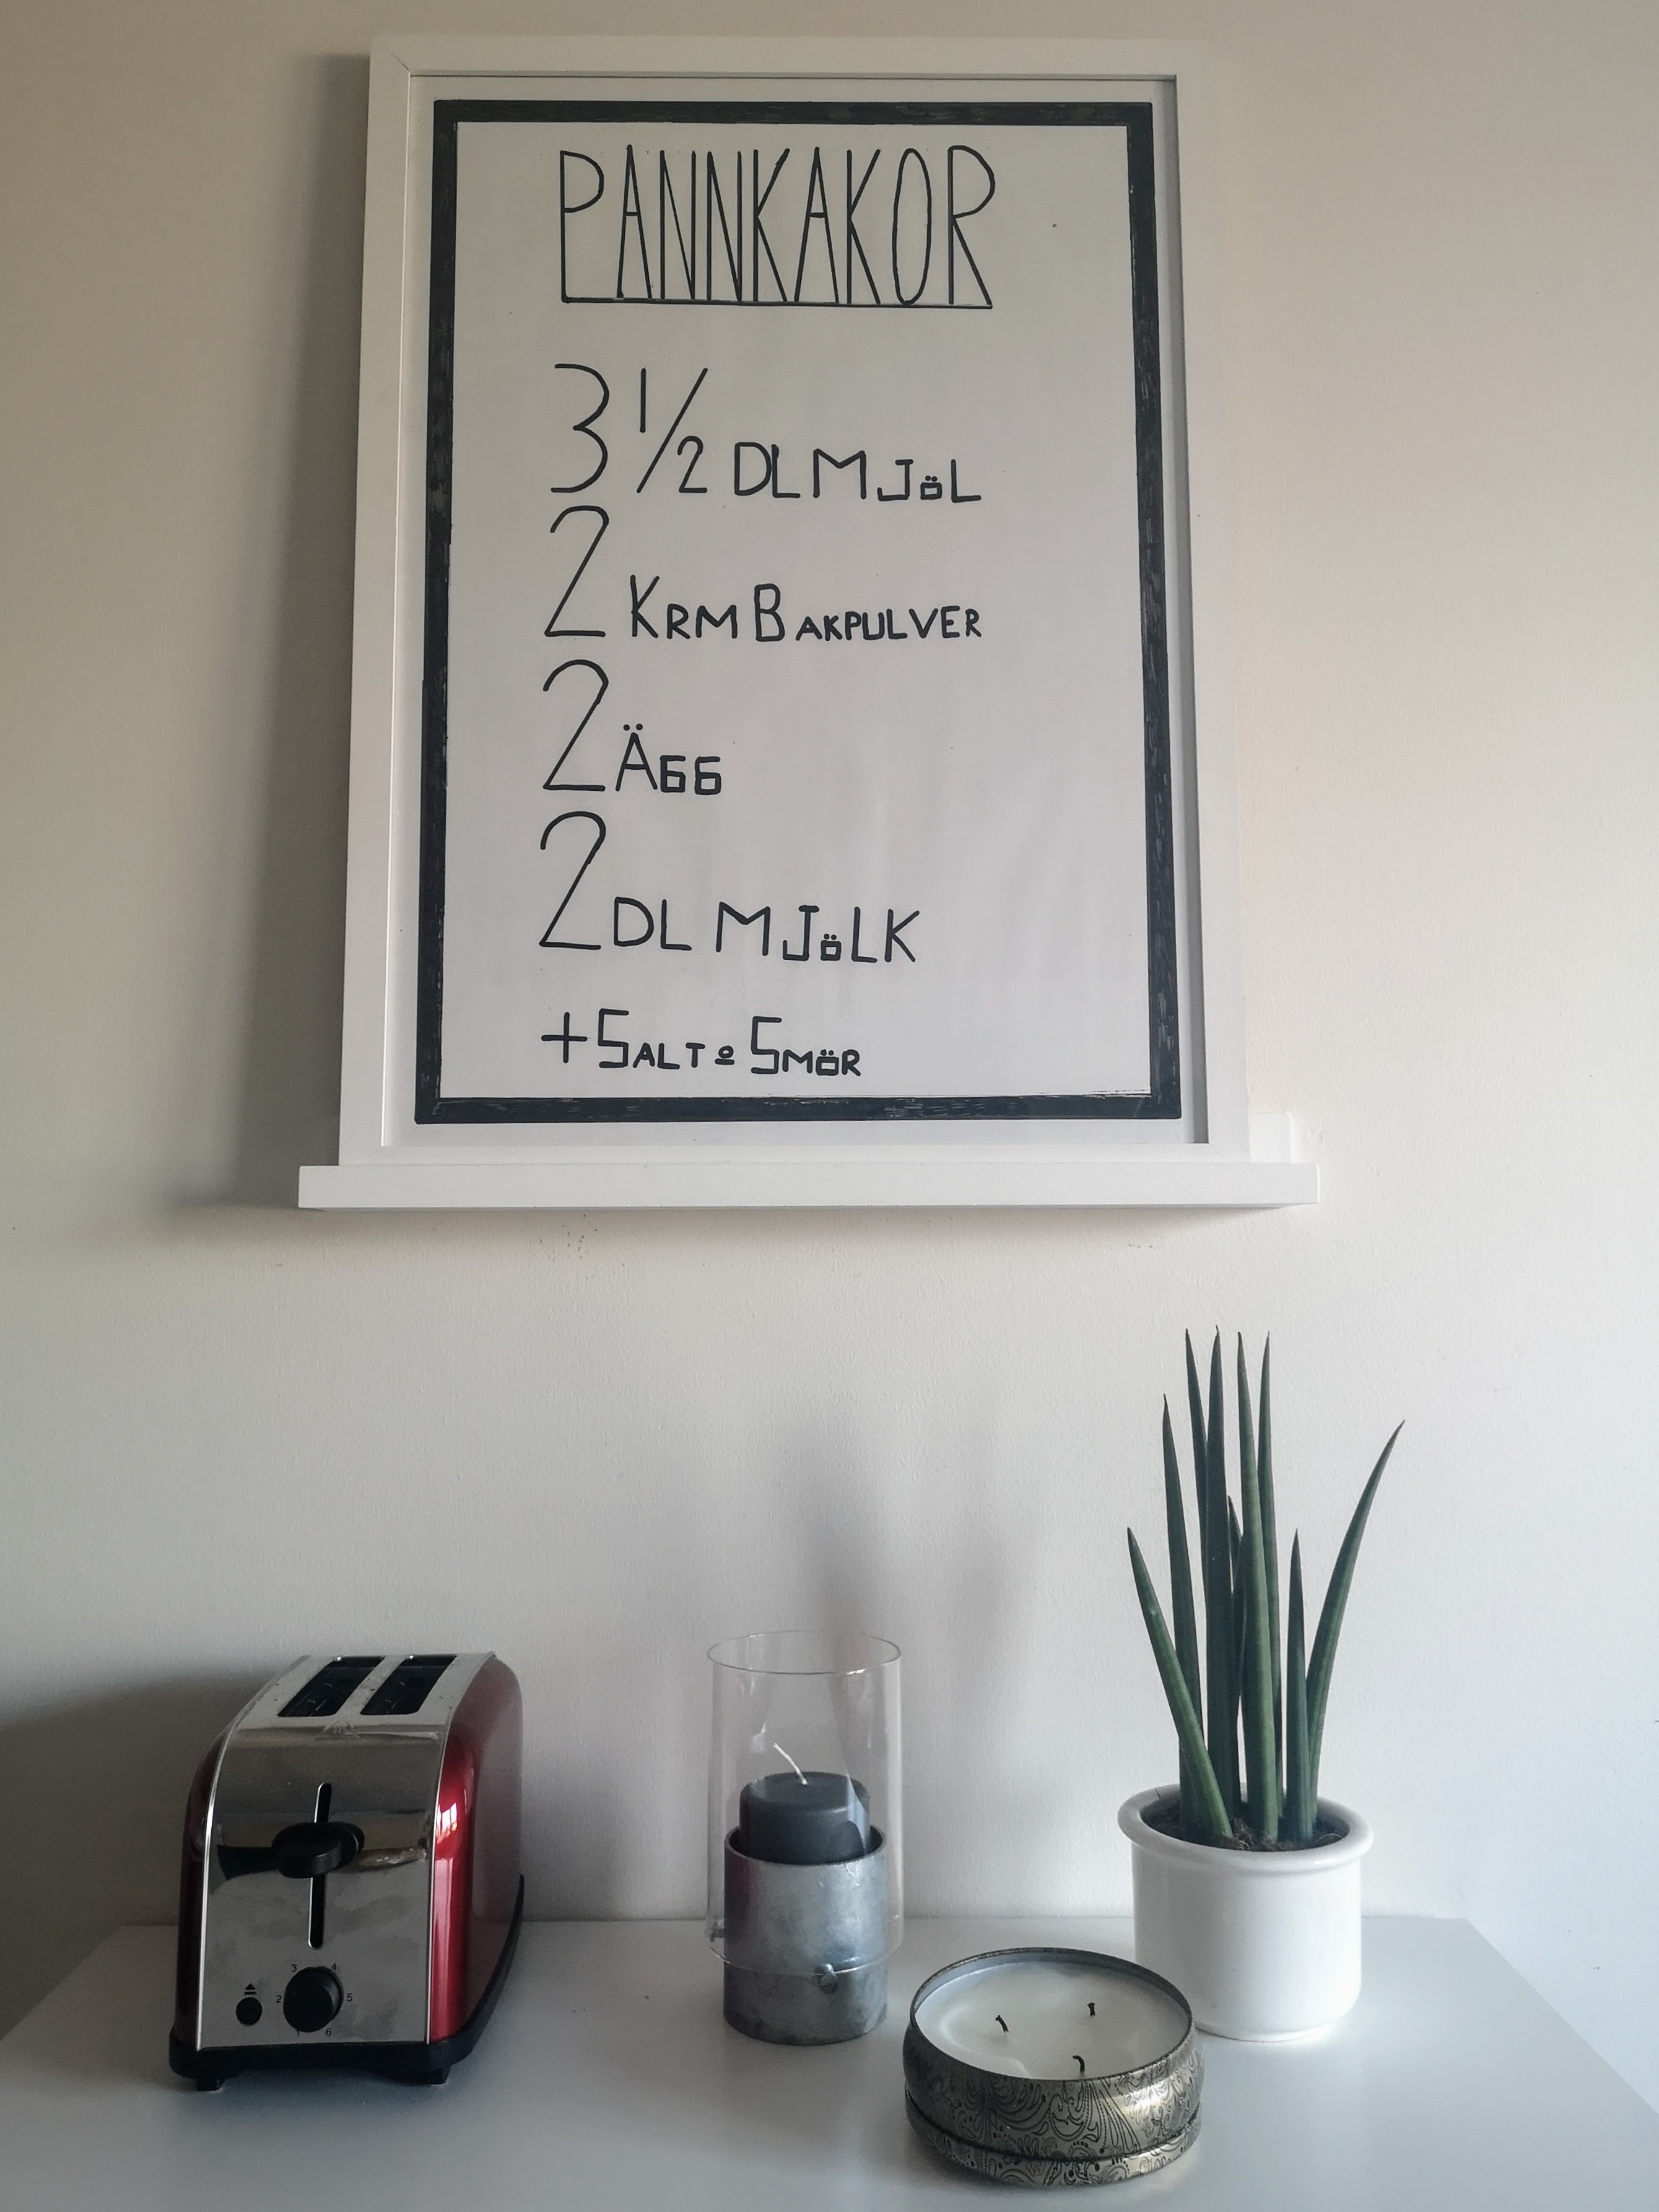 PANNKAKOR
3 1/2 DL MJöL
2 KRM BAKPULVER
2 ÄGG
2 DL MJöLK
+ SALT o SMöR
3 4
2 5
1 6